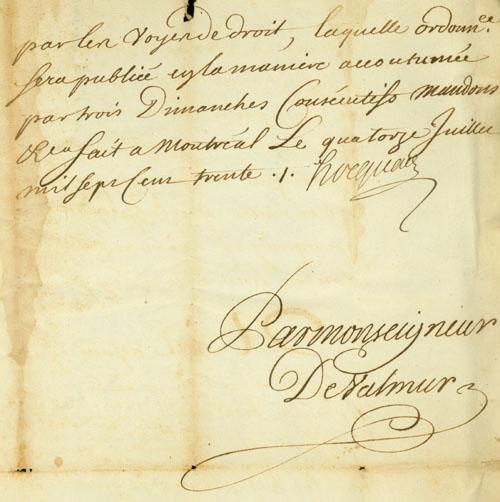 par les voyes de droit, laquelle ordonn.ce
sera publiée en la maniere accoutumée
par trois Dimanches Consécutifs mandons
&ca fait a Montréal Le quatorze Juillet
mil sept Cent trente . 1. hocquart
Par monseigneur
De Valmur